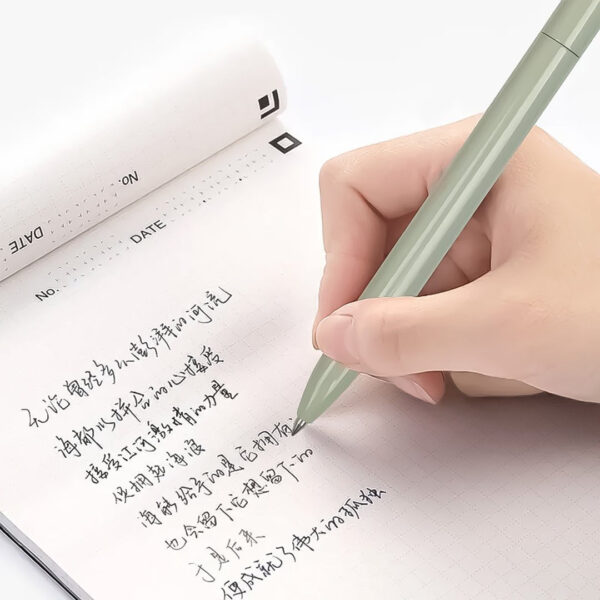 No.
DATE
No.
DATE
无论曾经多么澎湃的河流
海都以拼合的心接受
接受江河激情的力量
便拥抱海浪
海能给予的是它拥有
也会留下它想留下的
于是后来
便成就了伟大的孤独